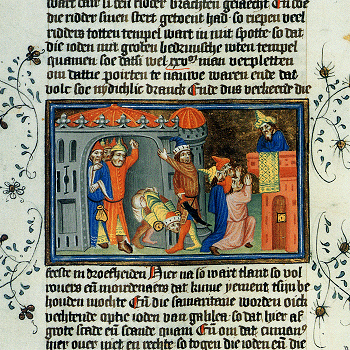 die ridder sinen stert getoent had so riepen veel
ridders totten tempel wart in nuit spotte so dat
die ioden mit groten bedzinissche wten tempel
quamen soe datsi wel xxv man verpletten
om dattie poirten te nauwe waren ende dat
volc soe nydichlic dranck Ende dus verkeerde die
feeste in droefheiden Hier na so wart tlant so vol
rovers en mordenaers dat kume yement tsijn be
houden mochte En die samaritane worden oick
vechtende optie ioden van galileen so dat hier af
grote scade en scande quam En om dat cuman
hier over niet en rechte so togen die ioden en die